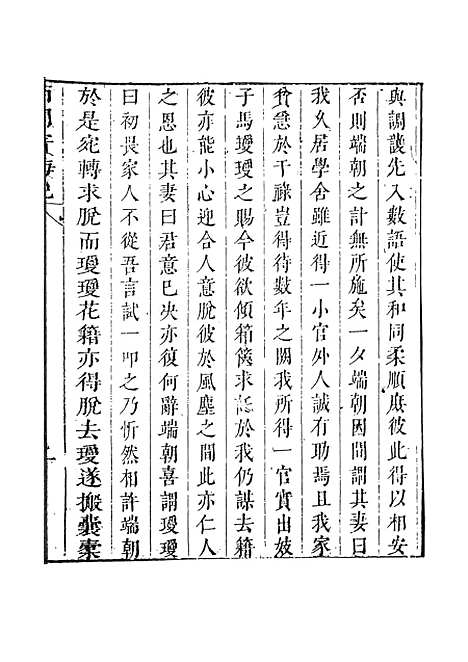 與調護先入數語使其和同柔順庶彼此得以相安
否則端朝之計無所施矣一夕端朝因間謂其妻曰
我久居學舍雖近得一小官外人誠有助焉且我家
貧急於干祿豈得待數年之闕我所得一官實由妓
子馬瓊瓊之賜今彼欲傾箱篋求託於我仍謀去籍
彼亦能小心迎合人意脫彼於風塵之此亦仁人
之恩也其妻曰君意已决亦復何辭端朝喜謂瓊瓊
曰初畏家人不從吾言試一叩之乃忻然相許端朝
於是宛轉求脫而瓊瓊花籍亦得脫去瓊遂搬囊橐